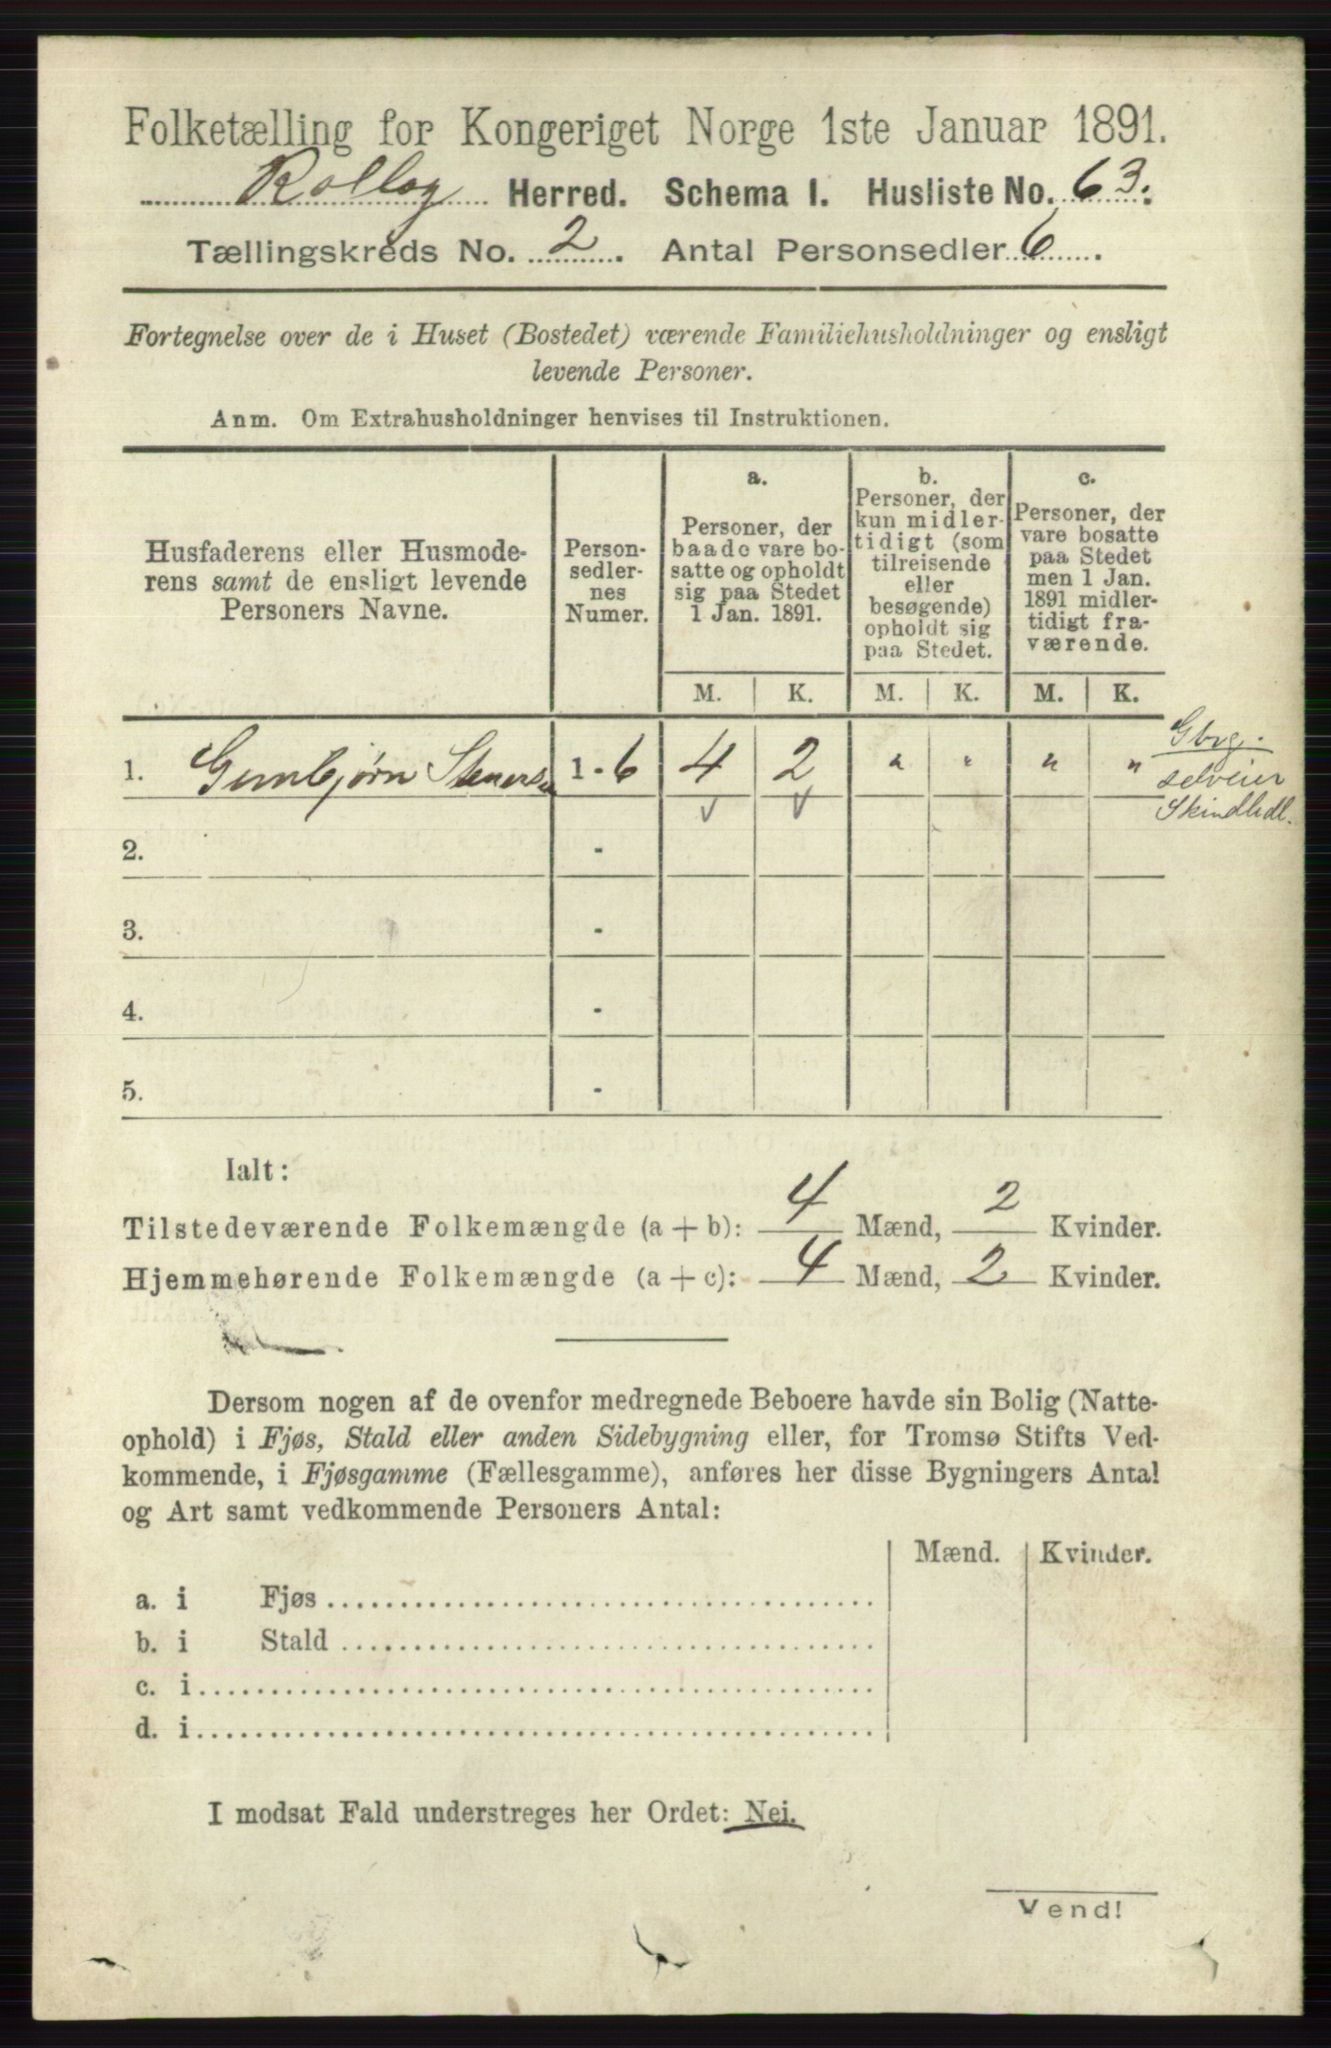 Folketælling for Kongeriget Norge 1ste Januar 1891.
Rollag Herred. Schema I. Husliste No. 63.
Tællingskreds No. 2. Antal Personsedler 6.
Fortegnelse over de i Huset (Bostedet) værende Familiehusholdninger og ensligt
levende Personer.
Anm. Om Extrahusholdninger henvises til Instruktionen.
Husfaderens eller Husmode-
rens samt de ensligt levende
Personers Navne.
Person-
sedler-
nes
Numer.
a.
Personer, der
baade vare bo-
satte og opholdt
sig paa Stedet
1 Jan. 1891.
b.
Personer, der
kun midler-
tidigt (som
tilreisende
eller
besøgende)
opholdt sig
paa Stedet.
c.
Personer, der
vare bosatte
paa Stedet
men 1 Jan.
1891 midler-
tidigt fra-
værende.
M. K. M. K. M. K.
1. Gunbjørn Stenersen 1 - 6 4 2 " " " "
Gbrg.
selveier
v v
2. -
3. -
4. -
5. -
Ialt:
Tilstedeværende Folkemængde (a + b): 4 Mænd, 2 Kvinder.
Hjemmehørende Folkemængde (a + c): 4 Mænd, 2 Kvinder.
Dersom nogen af de ovenfor medregnede Beboere havde sin Bolig (Natte-
ophold) i Fjøs, Stald eller anden Sidebygning eller, for Tromsø Stifts Ved-
kommende, i Fjøsgamme (Fællesgamme), anføres her disse Bygningers Antal
og Art samt vedkommende Personers Antal:
Mænd. Kvinder.
a. i Fjøs
b. i Stald
c. i
d. i
I modsat Fald understreges her Ordet: Nei.
Vend!